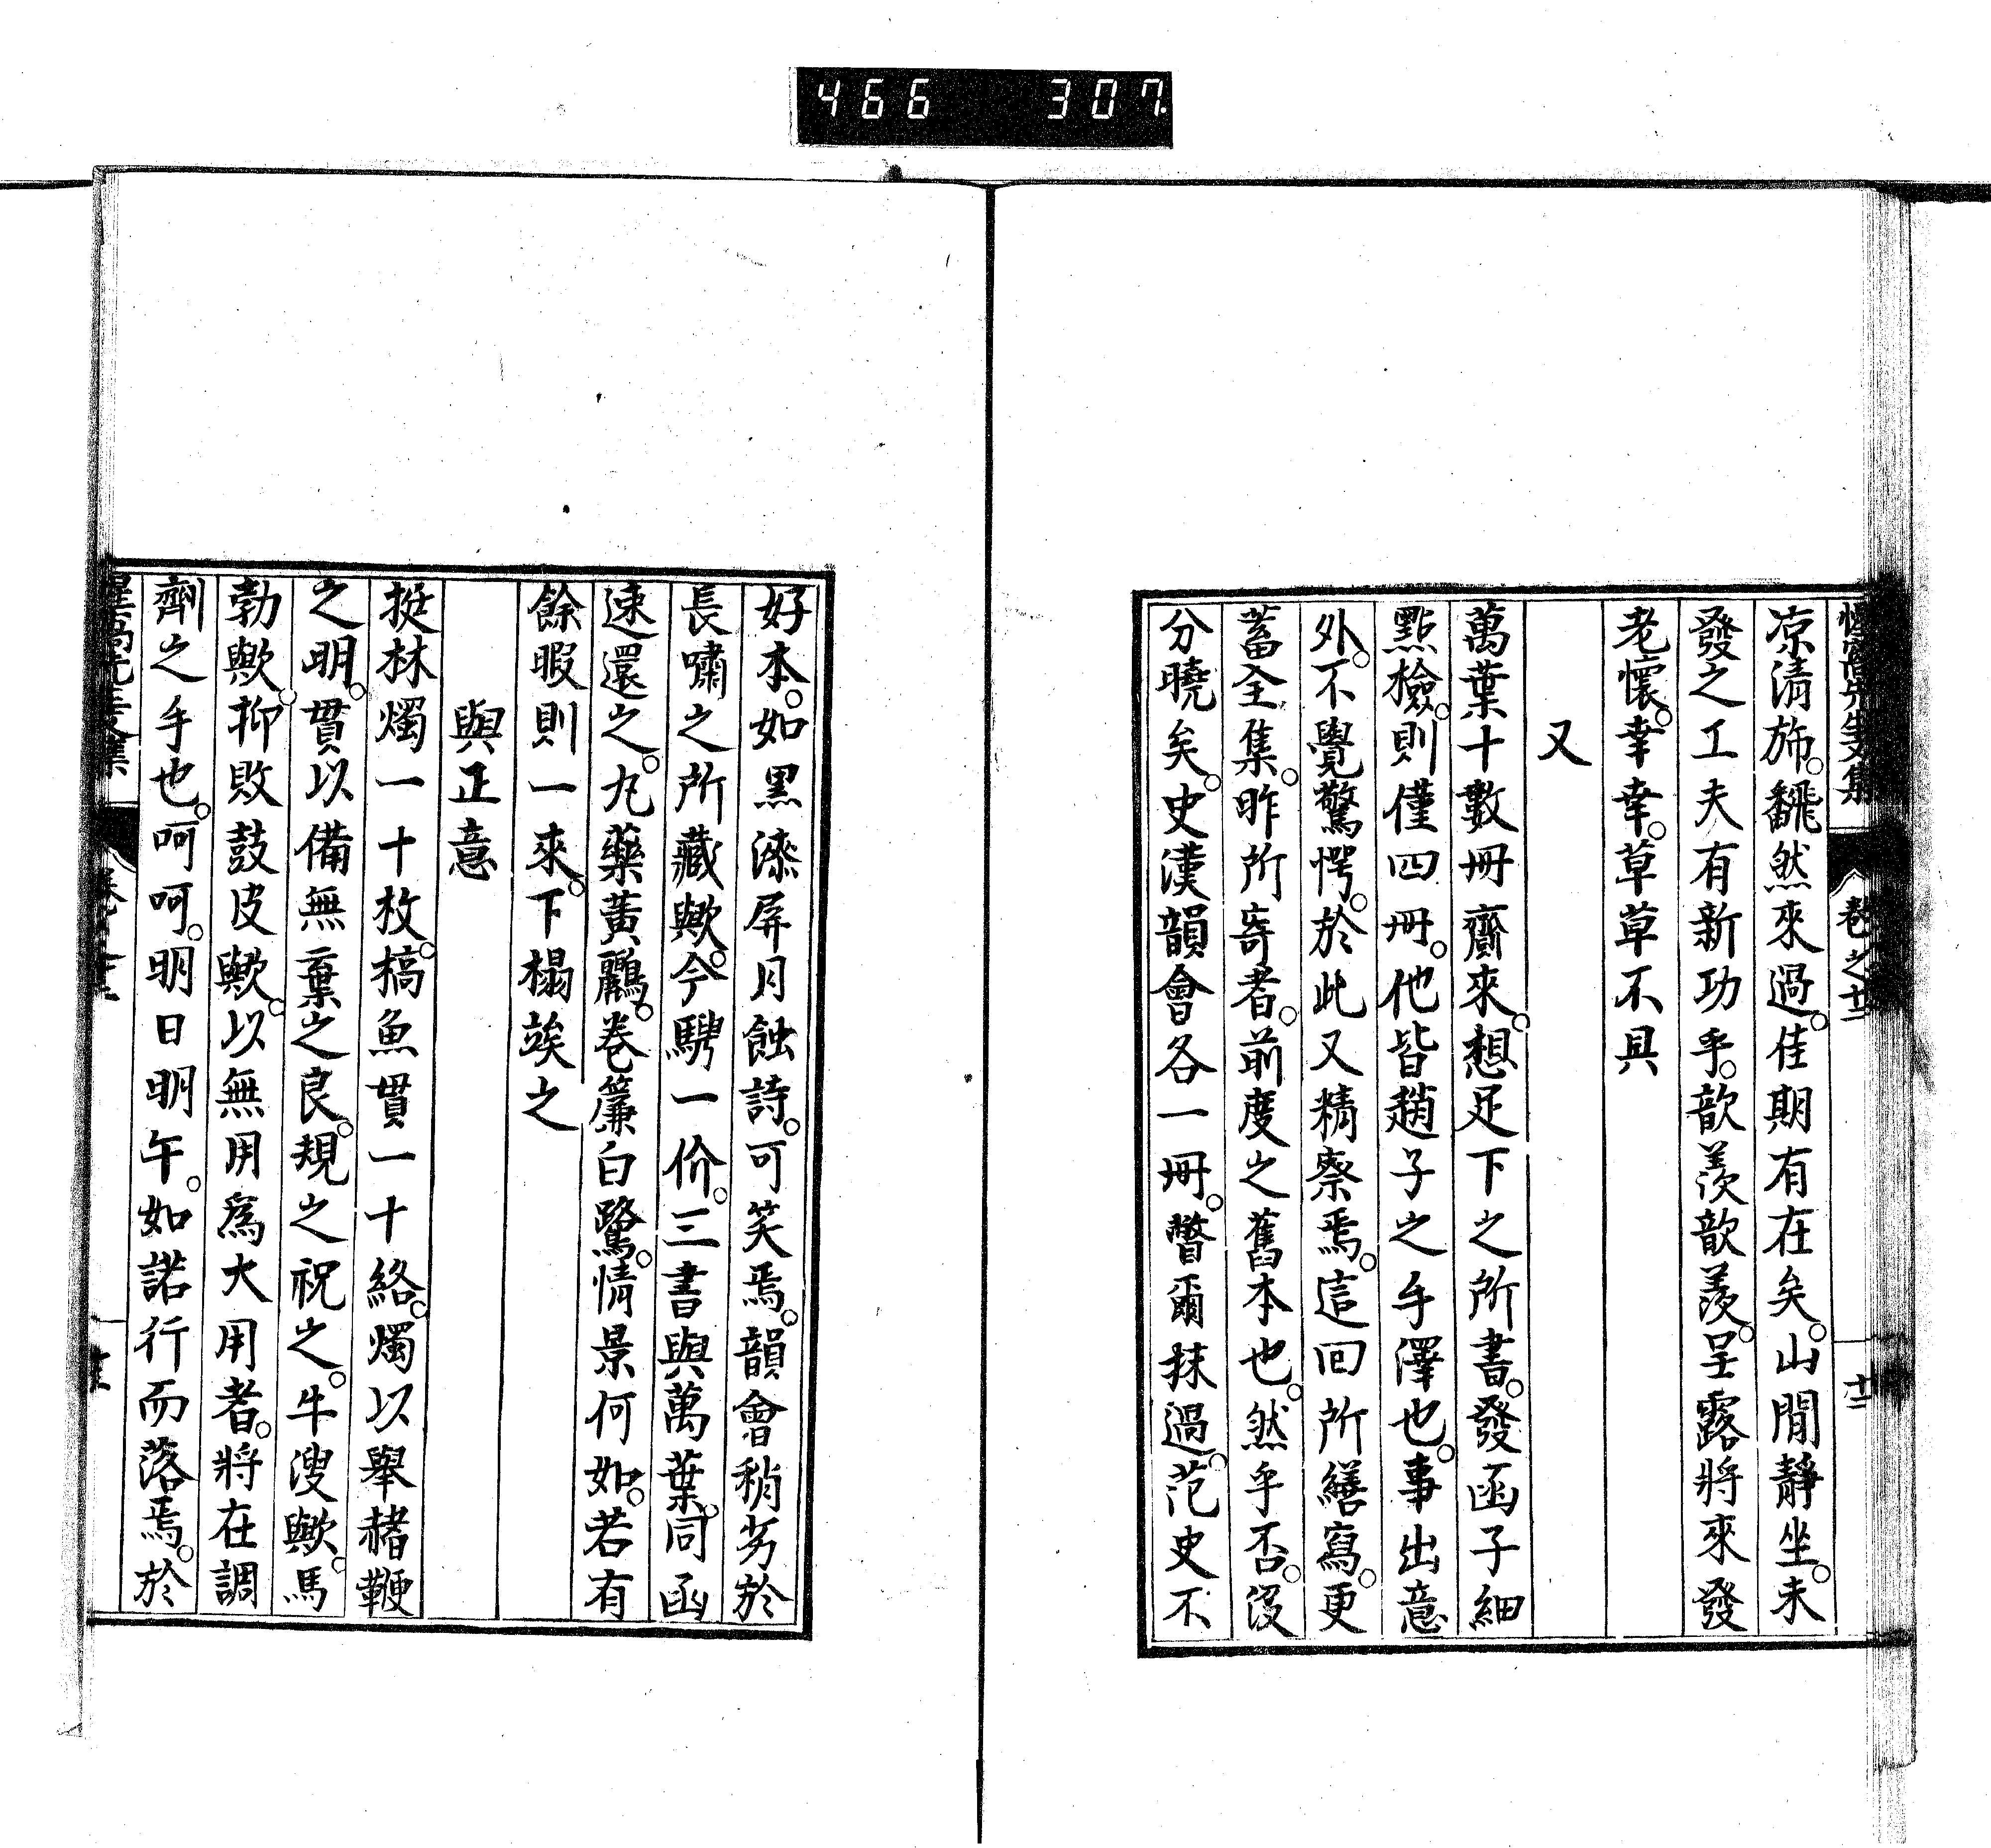 466 307.
惺窩先生文集 卷之十二 十二
凉清旆。飜然來過。佳期有在矣。山閒靜坐。未
發之工夫有新功乎。歆羨歆羨。呈露將來發
老懷。幸幸。草草不具
又
萬葉十數冊齎來。想足下之所書。發函子細
點檢。則僅四冊。他皆趙子之手澤也。事出意
外。不覺驚愕。於此又精察焉。這回所繕寫。更
蓄全集。昨所寄者。前度之舊本也。然乎否。沒
分曉矣。史漢韻會各一冊。瞥爾抹過。范史不
好本。如黑漆屏月蝕詩。可笑焉。韻會稍劣於
長嘯之所藏歟。今騁一价。三書與萬葉。同函
速還之。丸藥黃鸝。卷簾白鷺。情景何如。若有
餘暇則一來。下榻竢之
與正意
挺林燭一十枚。槁魚貫一十絡。燭以舉赭鞭
之明。貫以備無棄之良。規之祝之。牛溲歟。馬
勃歟。抑敗鼓皮歟。以無用爲大用者。將在調
劑之手也。呵呵。明日明午。如諾行而落焉。於